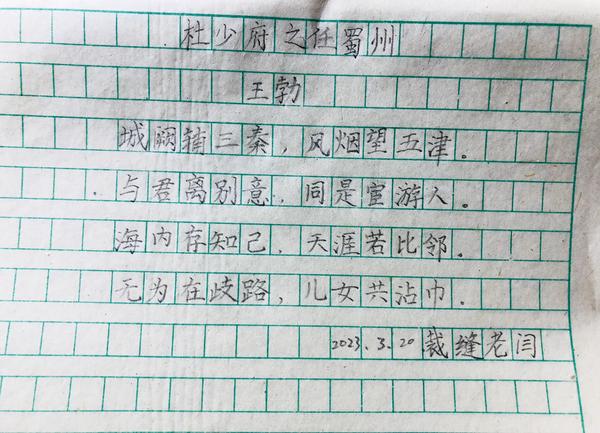 杜少府之任蜀州
王勃
城阙辅三秦，风烟望五津。
与君离别意，同是宦游人。
海内存知己，天涯若比邻。
无为在歧路，儿女共沾巾。
2023.3.20 裁缝老闫